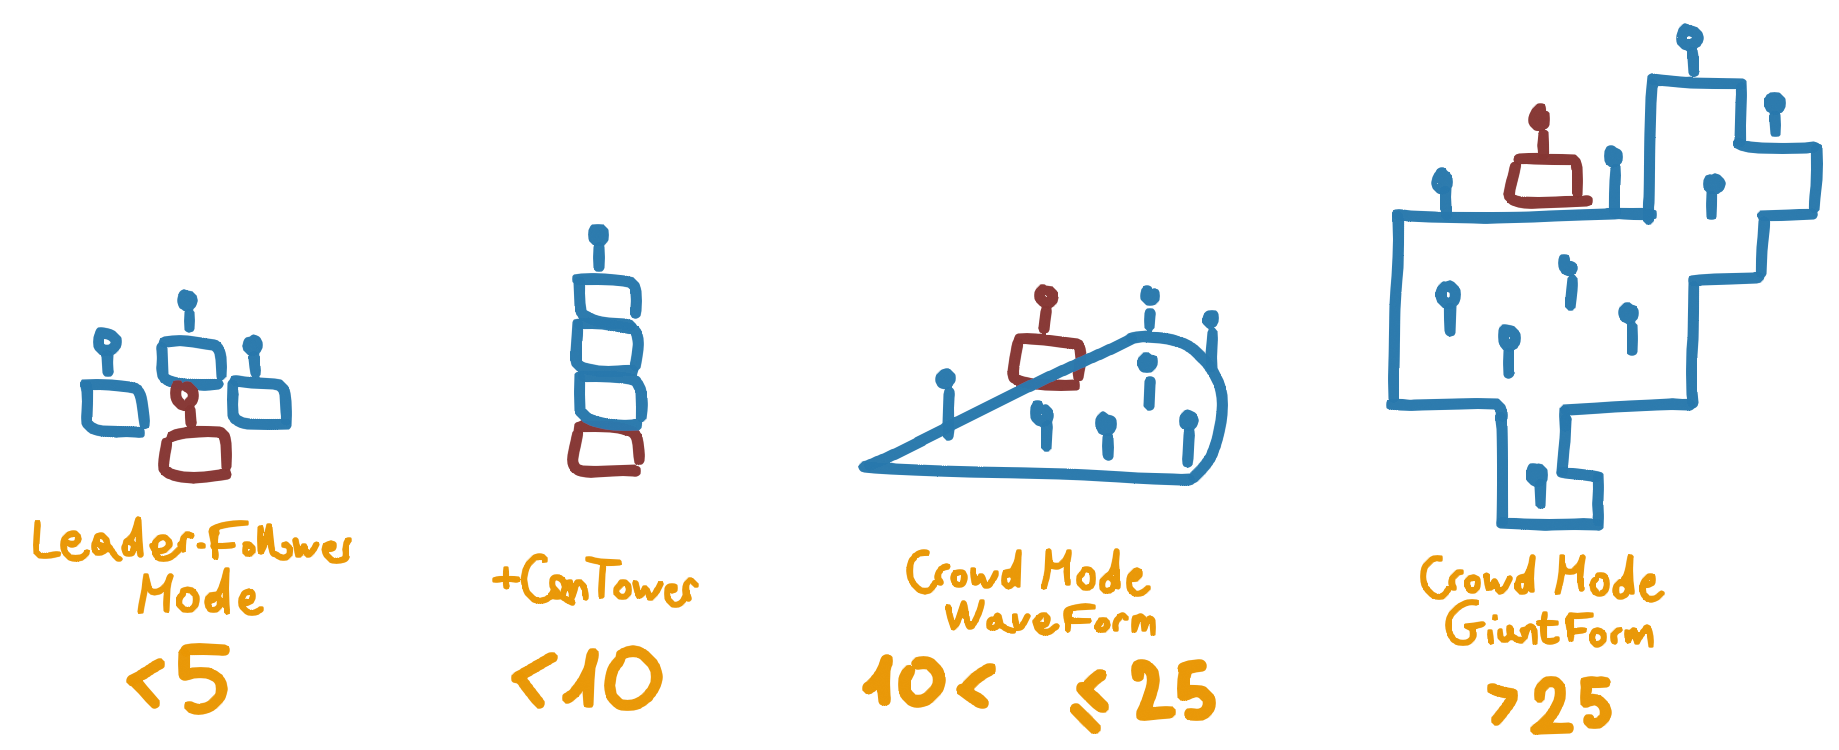 Leader-Follower
Mode
<5
+CanTower
<10
Crowd Mode
WaveForm
10< ≤25
Crowd Mode
GiantForm
>25